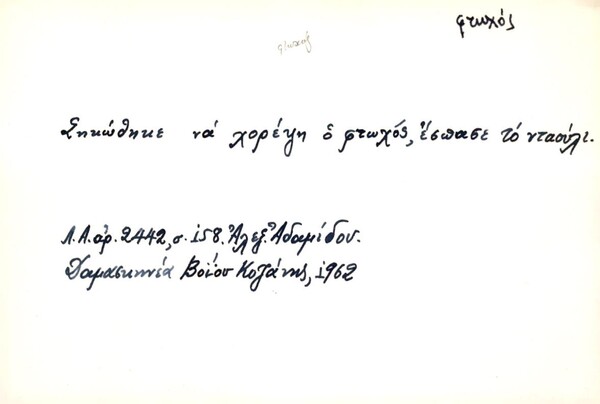 φτωχός
φτωχός
Σηκώθηκε νά χορέψη ὁ φτωχός, ἔσπασε τό νταούλι.
Λ.Α. ἀρ. 2442, σ. 158. Ἀλεξ. Ἀδαμίδου.
Δαμασκηνιά Βοΐου Κοζάνης, 1962